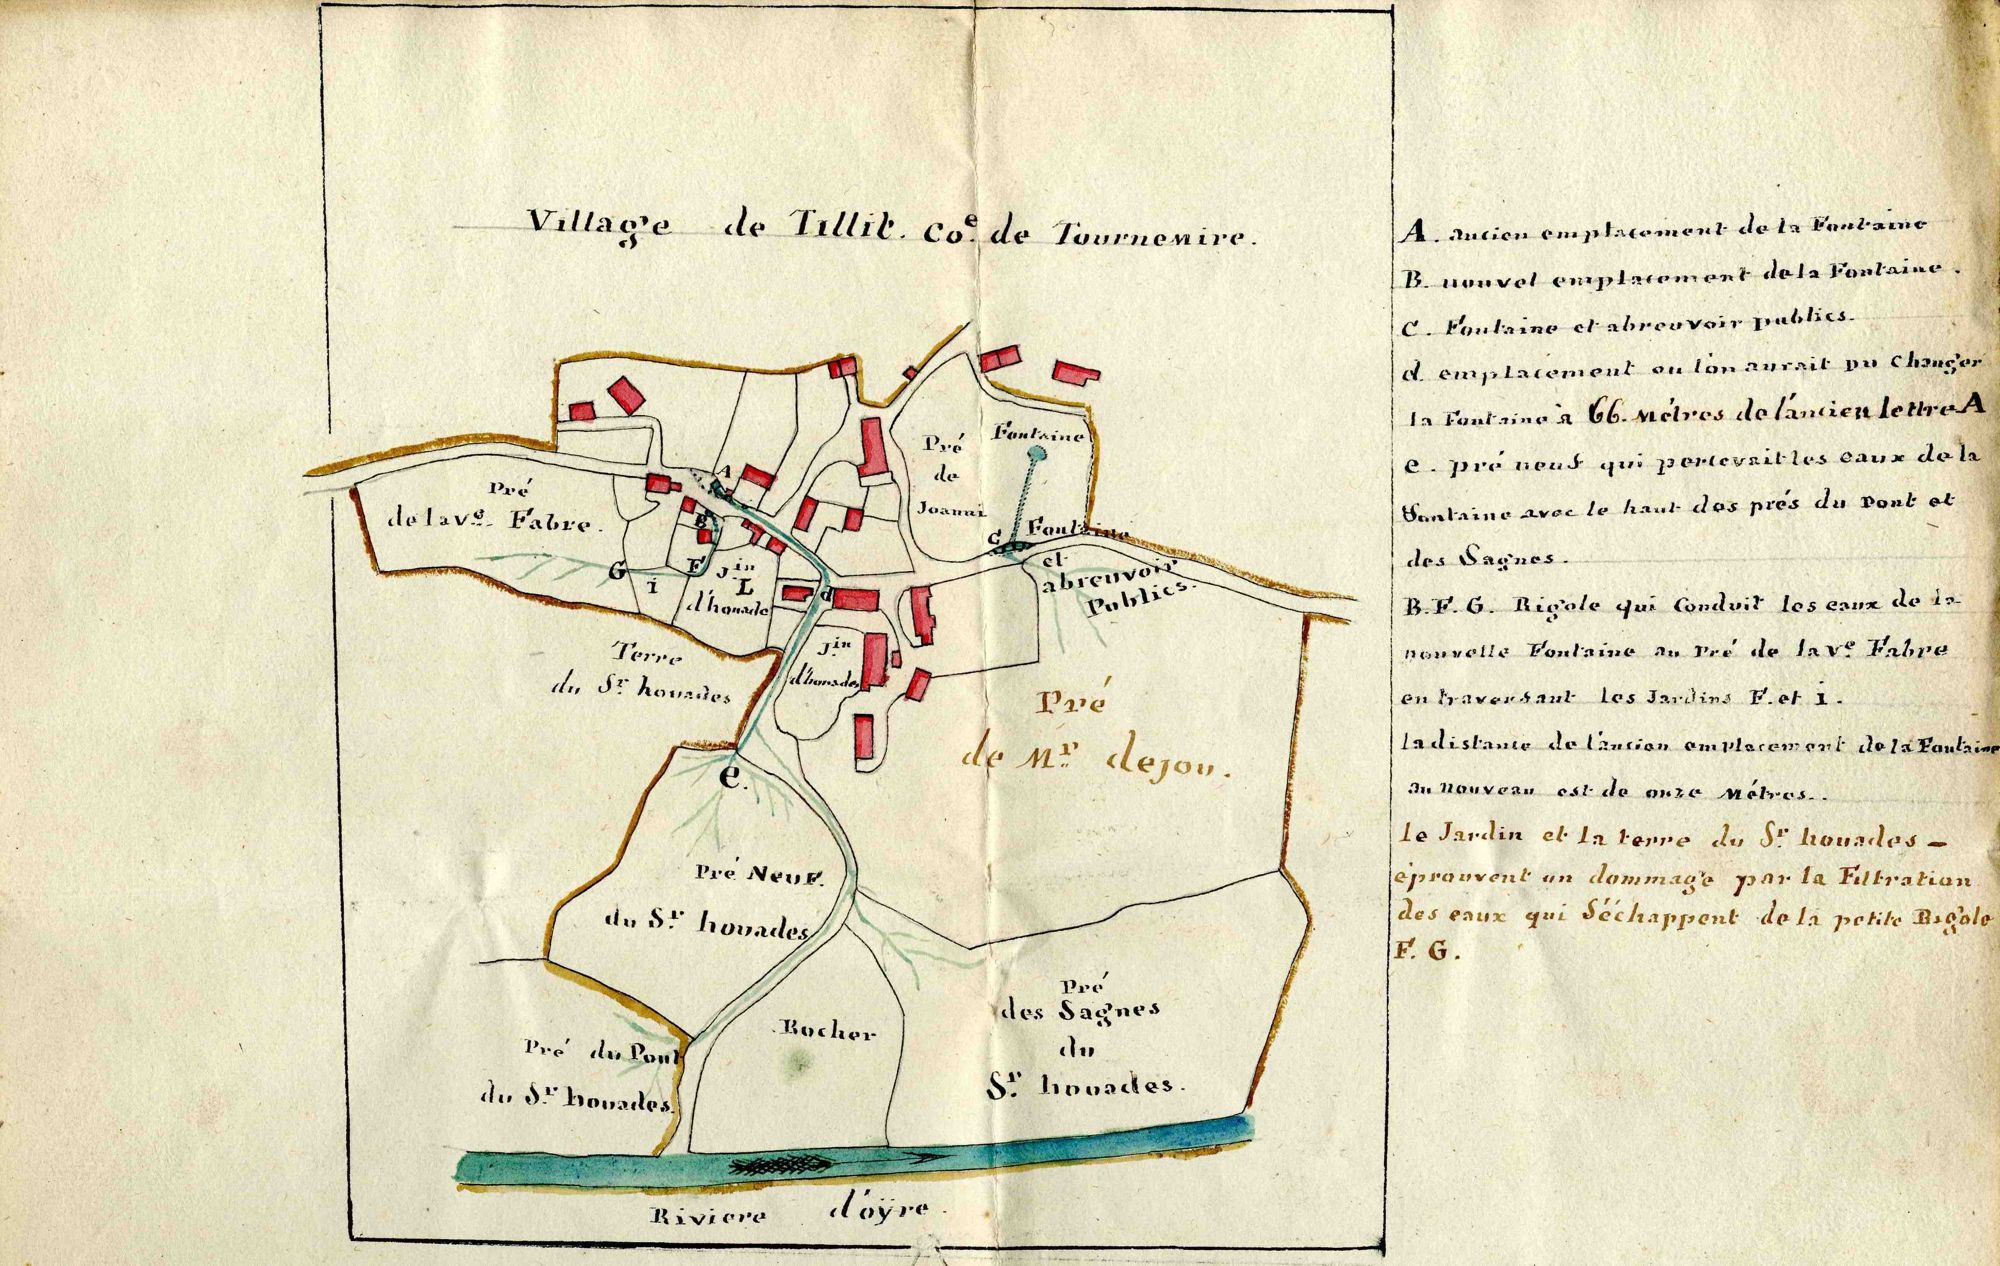 Village de Tillit. Coᵉ. de Tournemire.
A
Pré
de
Joanni
Fontaine
C
Fontaine
et
abreuvoir
Publics.
Pré
de la Vᵉ. Fabre.
B
G
i
F
Jⁱⁿ
L
d'houade
d
Jⁱⁿ
d'houades
Terre
du Sʳ. houades
Pré
de Mʳ. dejou.
e.
Pré Neuf.
du Sʳ. houades
Pré du Pont
du Sʳ. houades.
Rocher
Pré
des Sagnes
du
Sʳ. houades.
Riviere d'öyre.
A. ancien emplacement de la Fontaine
B. nouvel emplacement de la Fontaine.
C. Fontaine et abreuvoir publics.
d. emplacement ou l'on aurait pu Changer
la Fontaine à 66. Métres de l'ancien lettre A
e. pré neuf qui percevait les eaux de la
Fontaine avec le haut des prés du Pont et
des Sagnes.
B. F. G. Rigole qui Conduit les eaux de la
nouvelle Fontaine au Pré de la Vᵉ. Fabre
en traversant les Jardins F. et i.
la distance de l'ancien emplacement de la Fontaine
au nouveau est de onze Métres..
le Jardin et la terre du Sʳ. houades –
éprouvent un dommage par la Filtration
des eaux qui S'échappent de la petite Rigole
F. G.